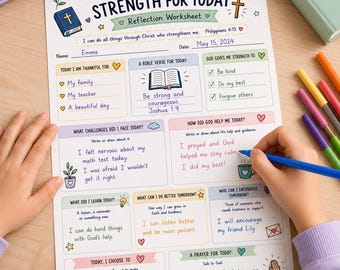 STRENGTH FOR TODAY
Reflection Worksheet
I can do all things through Christ who strengthens me. Philippians 4:13
Name Emma Date May 15, 2024
TODAY I AM THANKFUL FOR:
My family
My teacher
A beautiful day
A BIBLE VERSE FOR TODAY:
Be strong and
courageous.
Joshua 1:9
GOD GIVES ME STRENGTH TO:
Be kind
Do my best
Forgive others
WHAT CHALLENGES DID I FACE TODAY?
Write or draw about it.
I felt nervous about my
math test today.
I was afraid I wouldn't
get it right.
HOW DID GOD HELP ME TODAY?
Write or draw about His help and guidance.
I prayed and God
helped me stay calm.
I did my best!
WHAT DID I LEARN TODAY?
A lesson, a reminder
or something new.
I can do hard things
with God's help.
WHAT CAN I DO BETTER TOMORROW?
One way I can grow in
faith and kindness.
I can listen better
and be more patient.
WHO CAN I ENCOURAGE
TOMORROW?
Think of someone who
needs kindness or support.
I will encourage
my friend Lily
TODAY, I CHOOSE TO
A PRAYER FOR TODAY:
Talk to God